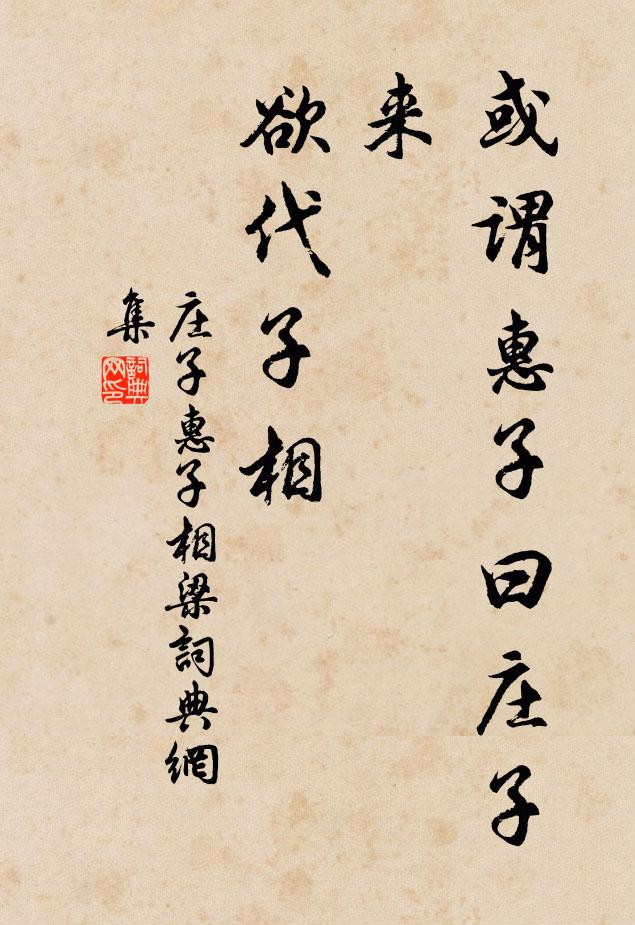 或谓惠子曰庄子
来
欲代子相
庄子惠子相梁詞典網
集
詞典
网印